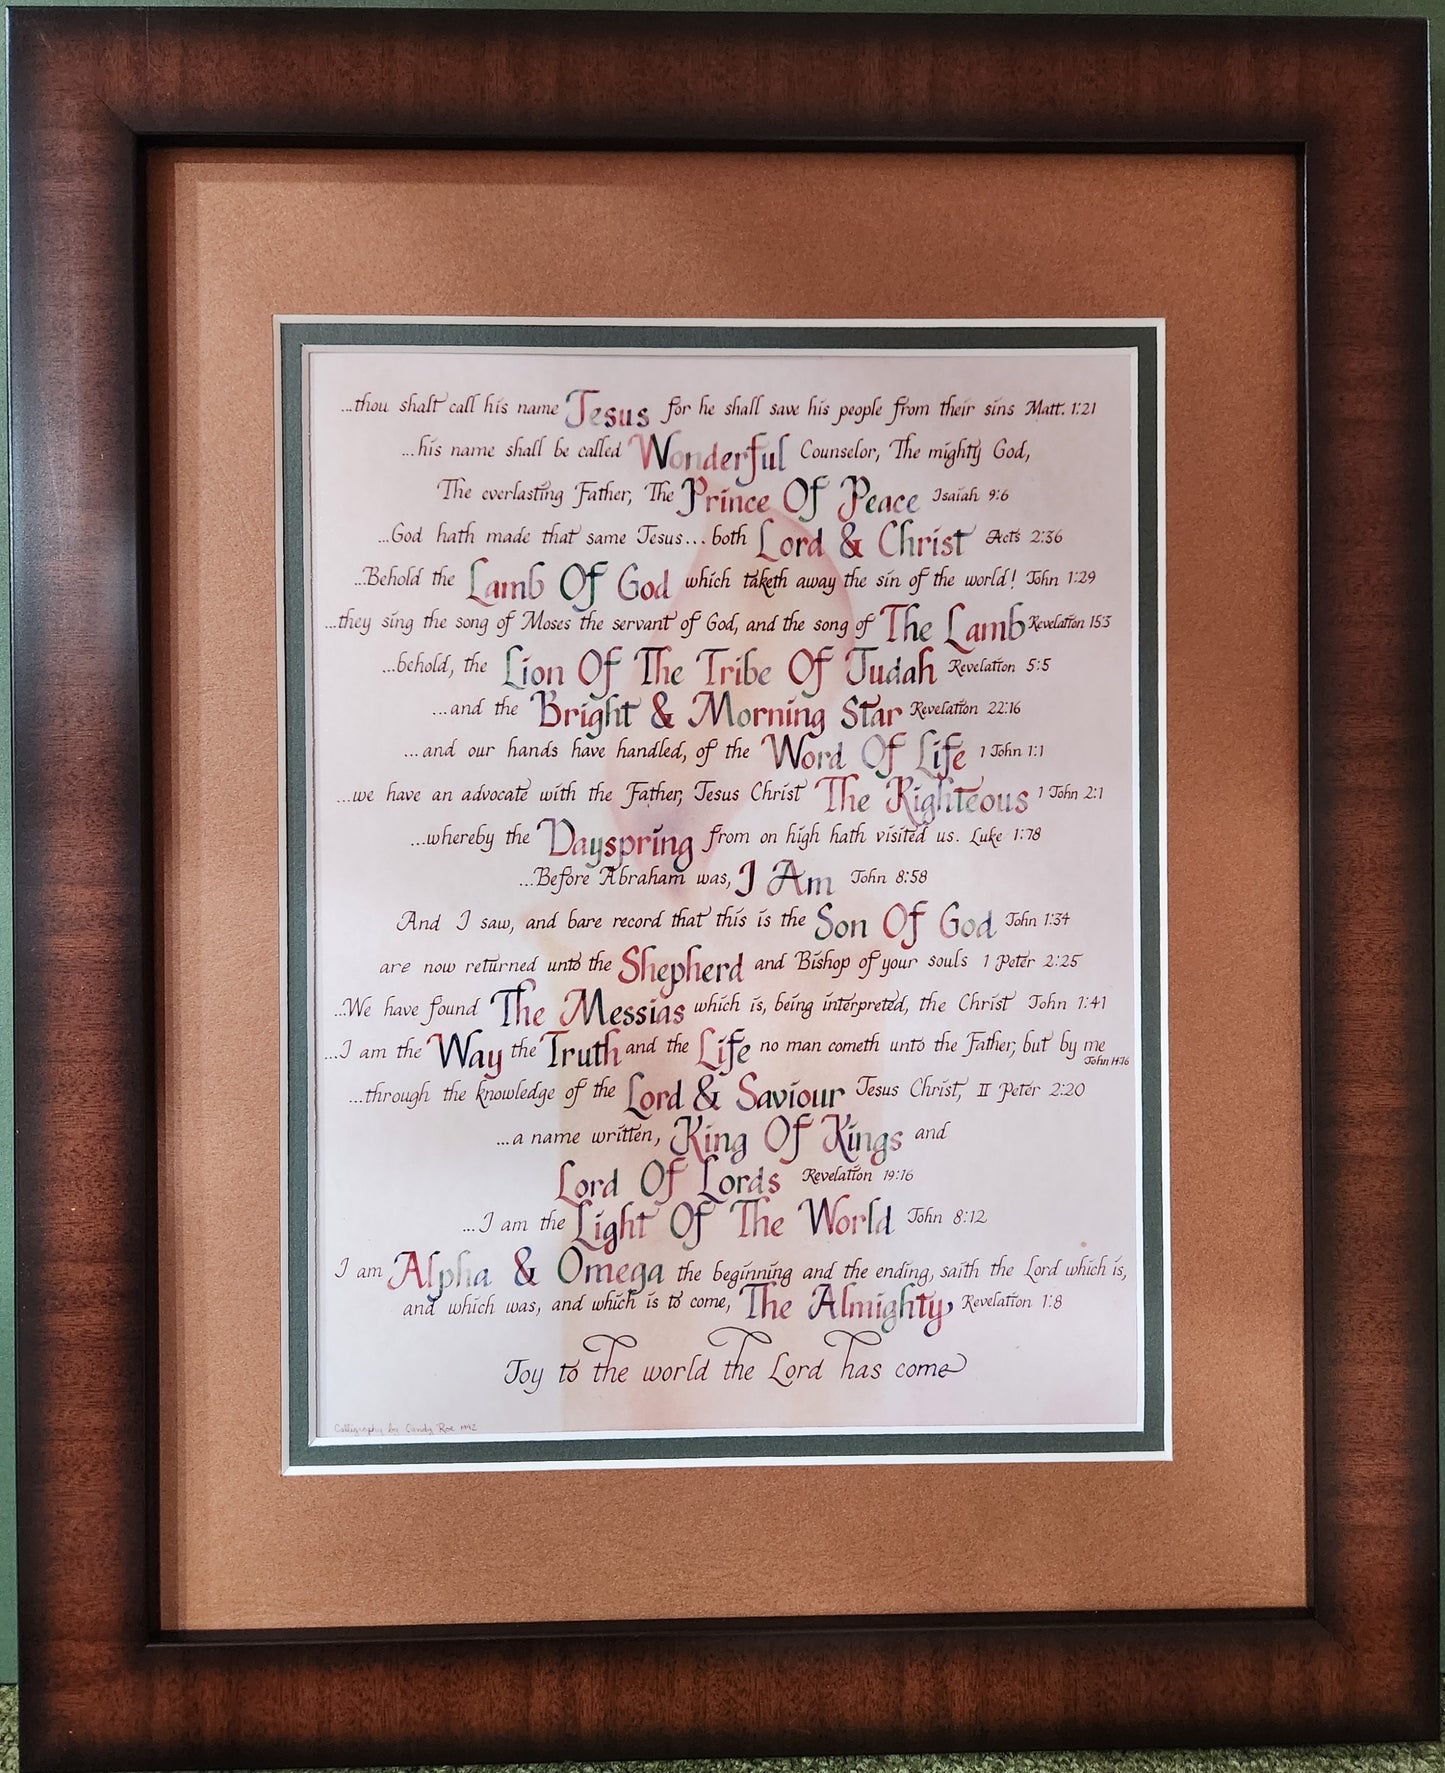 ...thou shalt call his name Jesus for he shall save his people from their sins Matt. 1:21
...his name shall be called Wonderful Counselor, The mighty God,
The everlasting Father, The Prince Of Peace Isaiah 9:6
...God hath made that same Jesus... both Lord & Christ Acts 2:36
...Behold the Lamb Of God which taketh away the sin of the world! John 1:29
...they sing the song of Moses the servant of God, and the song of The Lamb Revelation 15:3
...behold, the Lion Of The Tribe Of Judah Revelation 5:5
...and the Bright & Morning Star Revelation 22:16
...and our hands have handled, of the Word Of Life 1 John 1:1
...we have an advocate with the Father, Jesus Christ The Righteous 1 John 2:1
...whereby the Dayspring from on high hath visited us. Luke 1:78
...Before Abraham was, I Am John 8:58
And I saw, and bare record that this is the Son Of God John 1:34
are now returned unto the Shepherd and Bishop of your souls 1 Peter 2:25
...We have found The Messias which is, being interpreted, the Christ John 1:41
...I am the Way the Truth and the Life no man cometh unto the Father, but by me
John 14:16
...through the knowledge of the Lord & Saviour Jesus Christ, II Peter 2:20
...a name written, King Of Kings and
Lord Of Lords Revelation 19:16
...I am the Light Of The World John 8:12
I am Alpha & Omega the beginning and the ending, saith the Lord which is,
and which was, and which is to come, The Almighty, Revelation 1:8
Joy to the world the Lord has come
Calligraphy by Candy Roe 1992